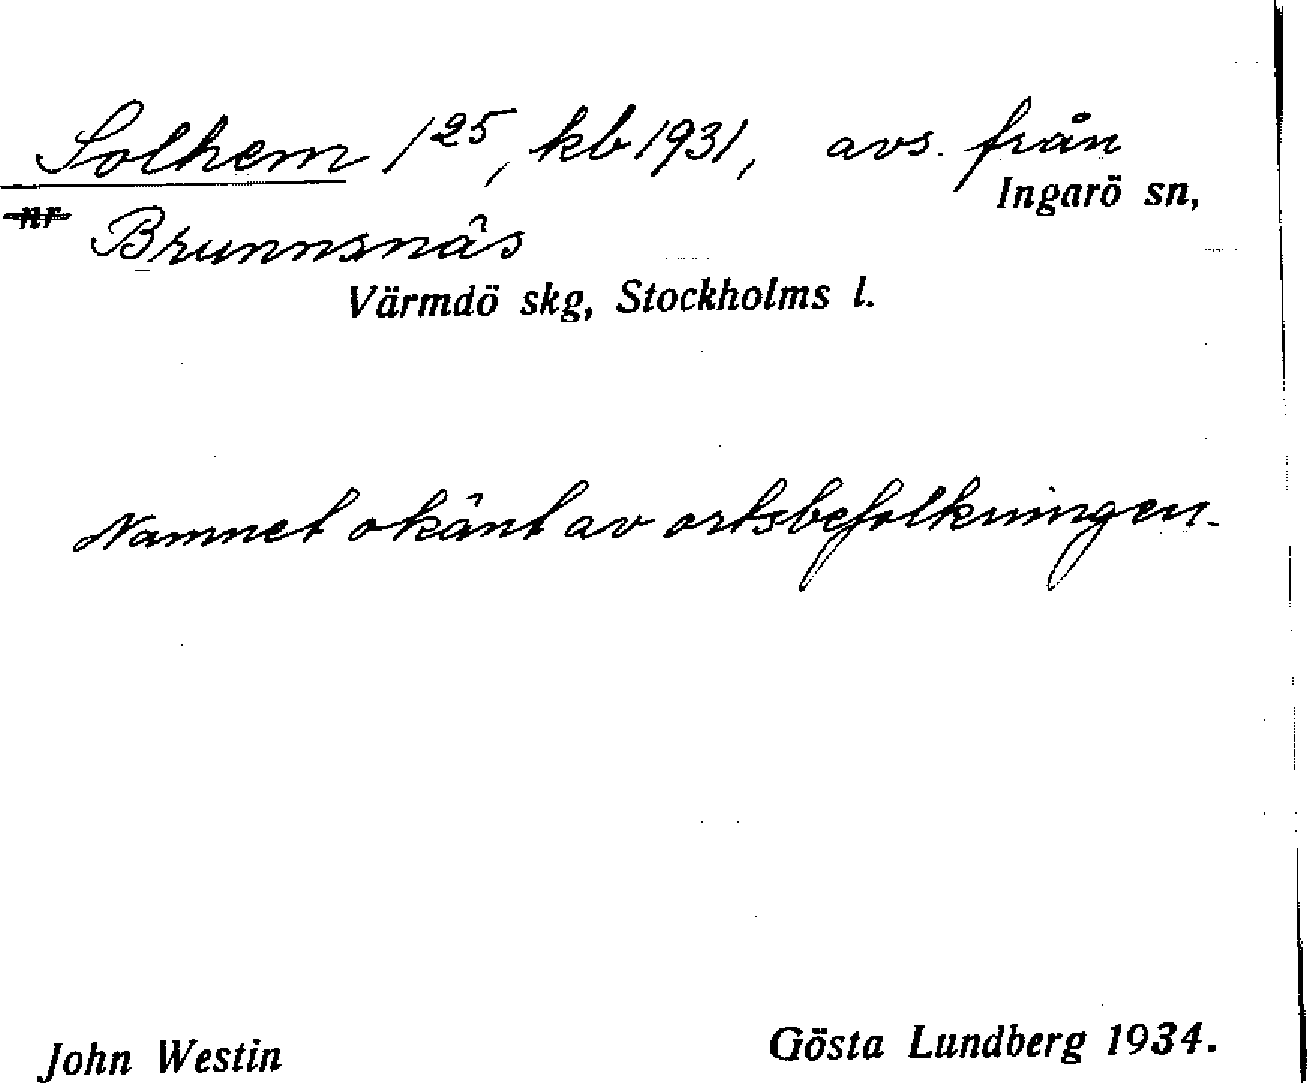 Solhem 1²⁵, kb 1931, avs. från
Ingarö sn,
nr Brunnsnäs
Värmdö skg, Stockholms l.
Namnet okänt av ortsbefolkningen.
John Westin
Gösta Lundberg 1934.